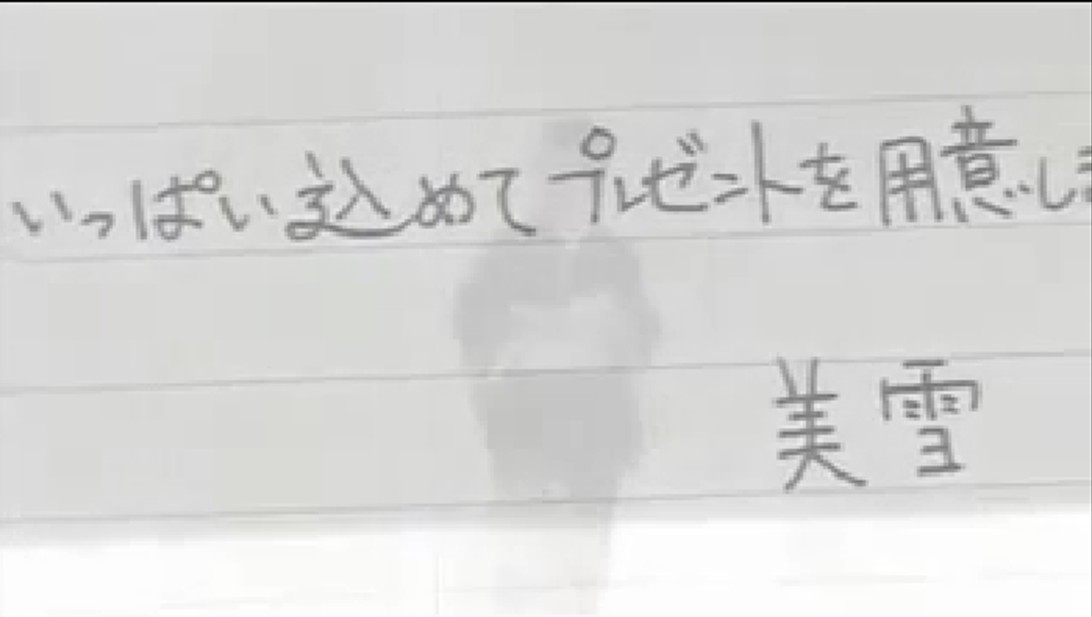 いっぱい込めてプレゼントを用意しま
美雪